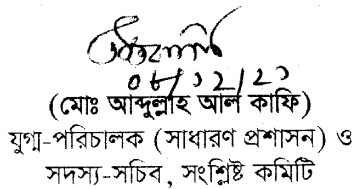 ০৮/১২/২০
(মোঃ আব্দুল্লাহ আল কাফি)
যুগ্ম-পরিচালক (সাধারণ প্রশাসন) ও
সদস্য-সচিব, সংশ্লিষ্ট কমিটি